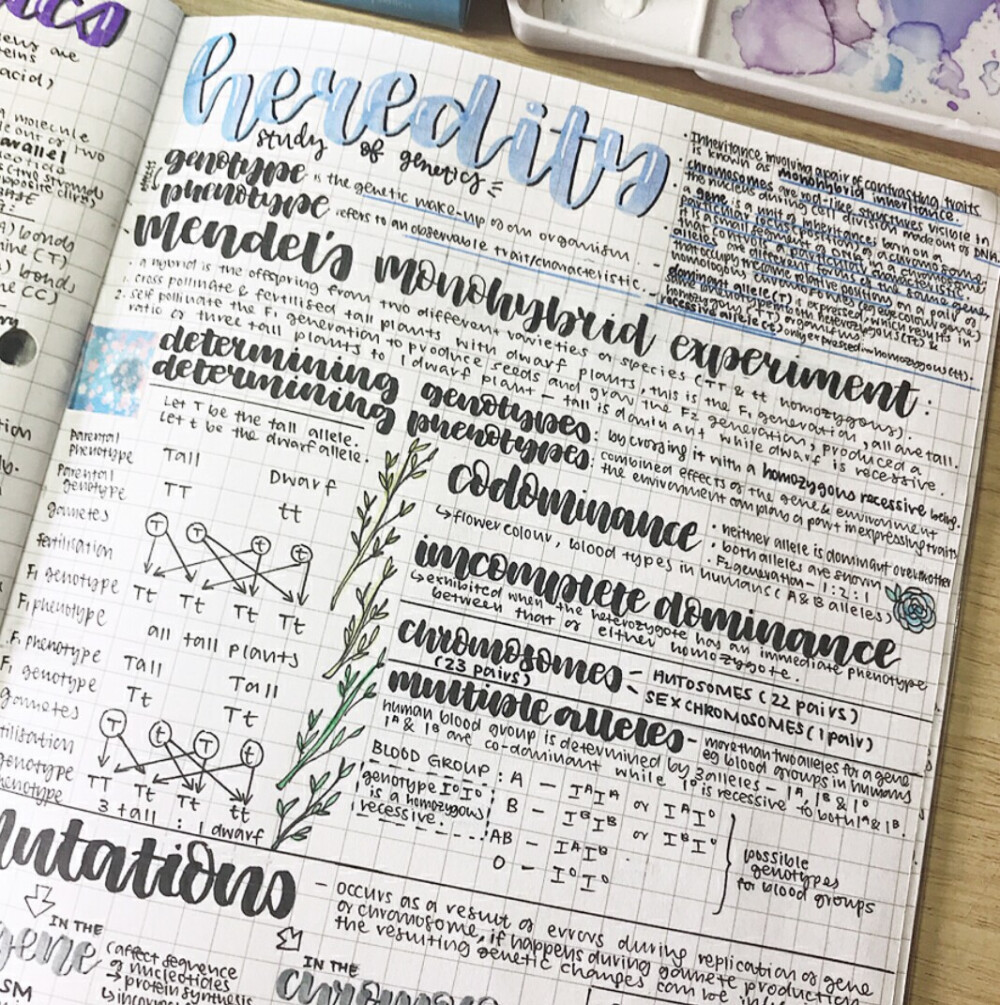 ics
eins are
teins
acid)
molecule
de our or two
parallel
bonds
ine (T)
bonds
ne (CC)
heredity
study of genetics
genotype is the genetic make-up of an organism.
phenotype refers to an observable trait/characteristic.
• Inheritance involving a pair of contrasting traits
is known as monohybrid inheritance.
• chromosomes are rod-like structures visible in
the nucleus during cell division made out of DNA.
• a gene is a unit of inheritance, born on a
particular locus (position) of a chromosome.
It is a small segment of DNA in a chromosome
that controls a particular characteristic.
• alleles are different forms of the same gene,
that occupy the same relative positions on a pair of
homologous chromosomes
• dominant allele (T) is expressed, which results in
same phenotype in both heterozygous (Tt) &
homozygous (TT) organisms.
recessive allele (t) only expressed in homozygous (tt).
Mendel's monohybrid experiment:
• a hybrid is the offspring from two different varieties or species (TT & tt homozygous).
1. cross pollinate & fertilised tall plants with dwarf plants, this is the F1 generation, all are tall.
2. self pollinate the F1 generation to produce seeds and grow the F2 generation, produced a
ratio of three tall plants to 1 dwarf plant – tall is dominant while dwarf is recessive.
determining genotypes: by crossing it with a homozygous recessive being.
determining phenotypes: combined effects of the gene & environment
the environment can play a part in expressing traits
Let T be the tall allele.
Let t be the dwarf allele.
Parental phenotype Tall Dwarf
Parental genotype TT tt
gametes T T t t
fertilisation
F1 genotype Tt Tt Tt Tt
F1 phenotype all tall plants
F1 phenotype Tall Tall
F1 genotype Tt Tt
gametes T t T t
tilisation
genotype TT Tt Tt tt
phenotype 3 tall : 1 dwarf
codominance
• neither allele is dominant over the other
• both alleles are shown
• F2 generation – 1:2:1
↳ flower colour, blood types in humans (A & B alleles)
imcomplete dominance
↳ exhibited when the heterozygote has an immediate phenotype
between that of either homozygote.
chromosomes – AUTOSOMES (22 pairs)
(23 pairs) – SEX CHROMOSOMES (1 pair)
multiple alleles – more than two alleles for a gene
eg blood groups in humans
human blood group is determined by 3 alleles – Iᴬ, Iᴮ & Iᴼ
Iᴬ & Iᴮ are co-dominant while Iᴼ is recessive to both Iᴬ & Iᴮ.
BLOOD GROUP : A – IᴬIᴬ or IᴬIᴼ
B – IᴮIᴮ or IᴮIᴼ
AB – IᴬIᴮ
O – IᴼIᴼ
genotype IᴼIᴼ
is a homozygous
recessive.
possible
genotypes
for blood groups
mutations
– occurs as a result of errors during replication of gene
or chromosome, if happens during gamete production
the resulting genetic changes can be
IN THE
gene
(affect sequence
of nucleotides
→ protein synthesis
↳ incorrect
SM
IN THE